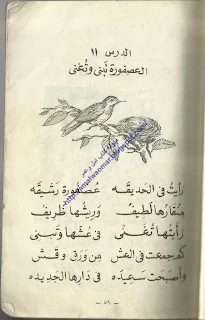 الدرس ١١
العصفورة تبنى وتغنى
رأيت فى الحديقه عصفورة رشيقه
منقارها لطيف وريشها ظريف
رأيتها تغنى فى عشها وتبنى
كم جمعت فى العش من ورق وقش
وأصبحت سعيده فى دارها الجديده
- ٥٩ -